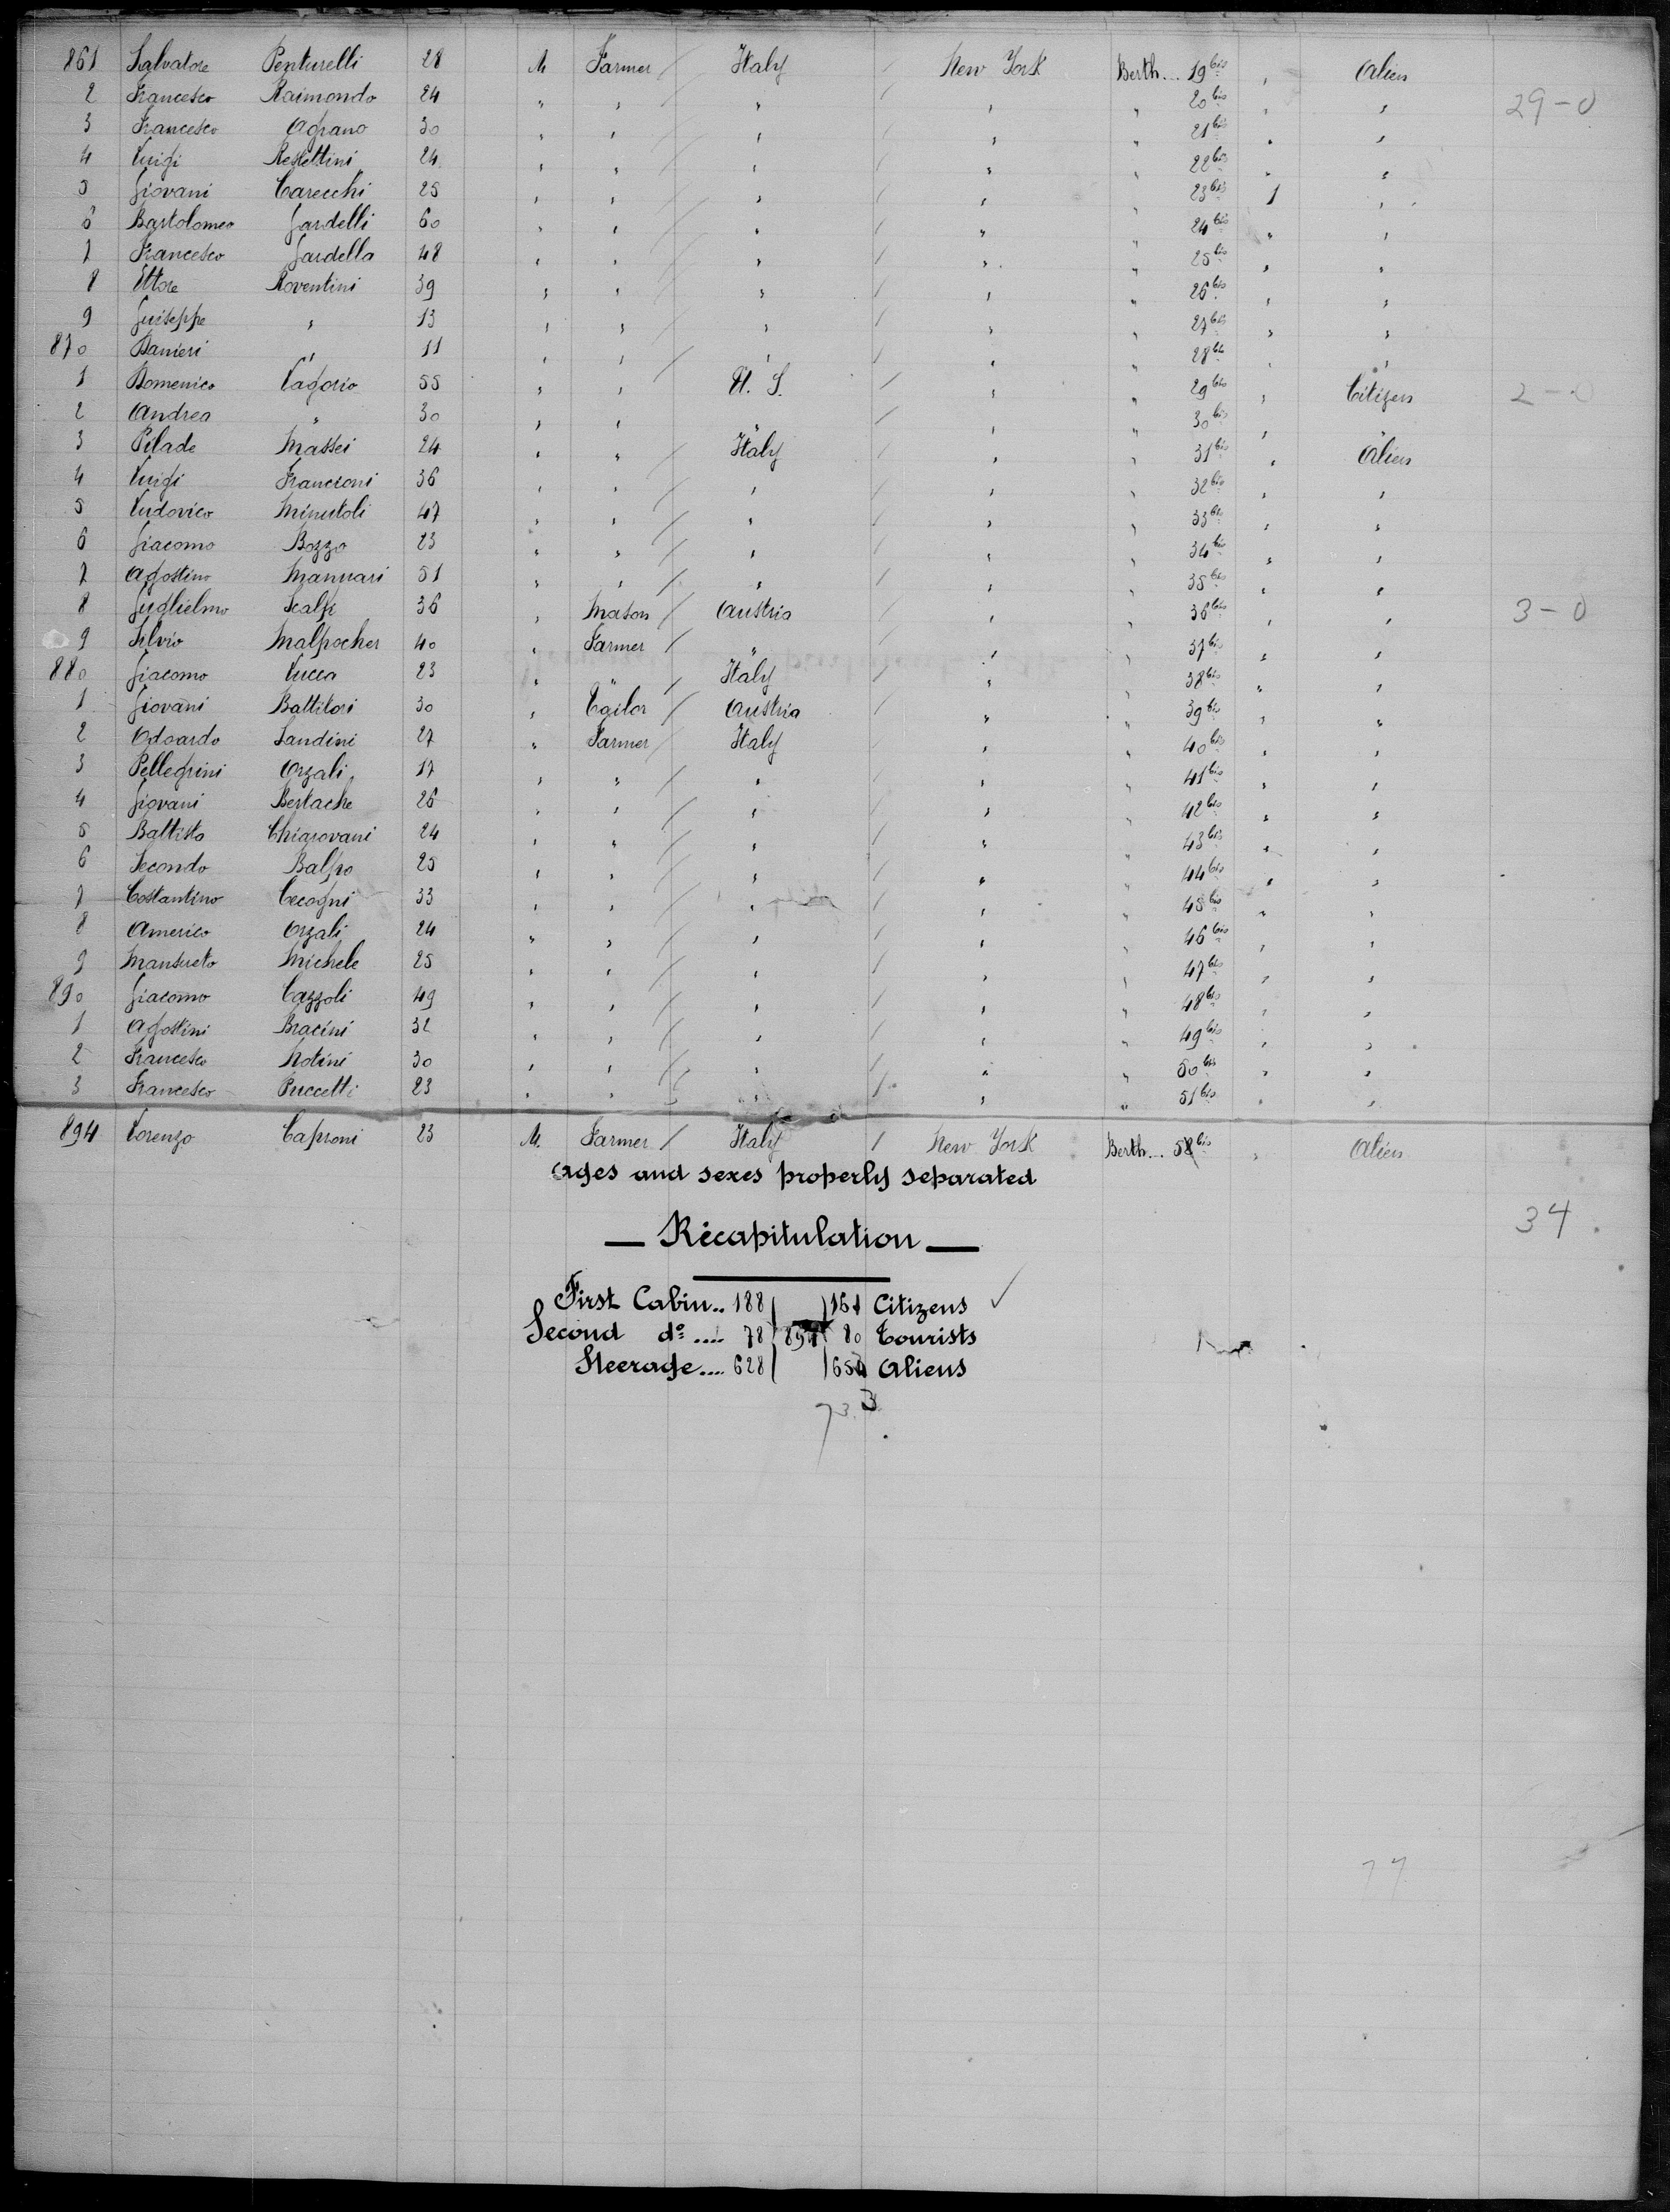 861 Salvatore Penturelli 28 M Farmer / Italy / New York Berth... 19 bis " Alien
2 Francesco Raimondo 24 " " / " / " " 20 bis " " 29-0
3 Francesco Agrano 30 " " / " / " " 21 bis " "
4 Luigi Restettini 24 " " / " / " " 22 bis " "
5 Giovani Carecchi 25 " " / " / " " 23 bis 1 "
6 Bartolomeo Gardelli 60 " " / " / " " 24 bis " "
7 Francesco Gardella 48 " " / " / " " 25 bis " "
8 Ettore Roventini 39 " " / " / " " 26 bis " "
9 Guiseppe " 13 " " / " / " " 27 bis " "
870 Ranieri " 11 " " / " / " " 28 bis " "
1 Domenico Vagorio 55 " " / U. S. / " " 29 bis " Citizen 2-0
2 Andrea " 30 " " / " / " " 30 bis " "
3 Pilade Massei 24 " " / Italy / " " 31 bis " Alien
4 Luigi Francioni 36 " " / " / " " 32 bis " "
5 Ludovico Minutoli 47 " " / " / " " 33 bis " "
6 Giacomo Bozzo 23 " " / " / " " 34 bis " "
7 Agostino Mannari 51 " " / " / " " 35 bis " "
8 Guglielmo Scalfi 36 " Mason / Austria / " " 36 bis " " 3-0
9 Silvio Malpocher 40 " Farmer / " / " " 37 bis " "
880 Giacomo Lucca 23 " " / Italy / " " 38 bis " "
1 Giovani Battilori 30 " Tailor / Austria / " " 39 bis " "
2 Odoardo Sandini 27 " Farmer / Italy / " " 40 bis " "
3 Pellegrini Orzali 17 " " / " / " " 41 bis " "
4 Giovani Bertache 26 " " / " / " " 42 bis " "
5 Battista Chiarovani 24 " " / " / " " 43 bis " "
6 Secondo Balpo 25 " " / " / " " 44 bis " "
7 Costantino Cecogni 33 " " / " / " " 45 bis " "
8 Americo Orzali 24 " " / " / " " 46 bis " "
9 Mansueto Michele 25 " " / " / " " 47 bis " "
890 Giacomo Cazzoli 49 " " / " / " " 48 bis " "
1 Agostini Bracini 32 " " / " / " " 49 bis " "
2 Francesco Notini 30 " " / " / " " 50 bis " "
3 Francesco Puccetti 23 " " / " / " " 51 bis " "
894 Lorenzo Caproni 23 M. Farmer / Italy / New York Berth... 58 bis " Alien
Ages and sexes properly separated
34
— Récapitulation —
First Cabin.. 188 161 Citizens ✓
Second do .... 78 894 80 Tourists
Steerage.... 628 654 Aliens
3
73
77